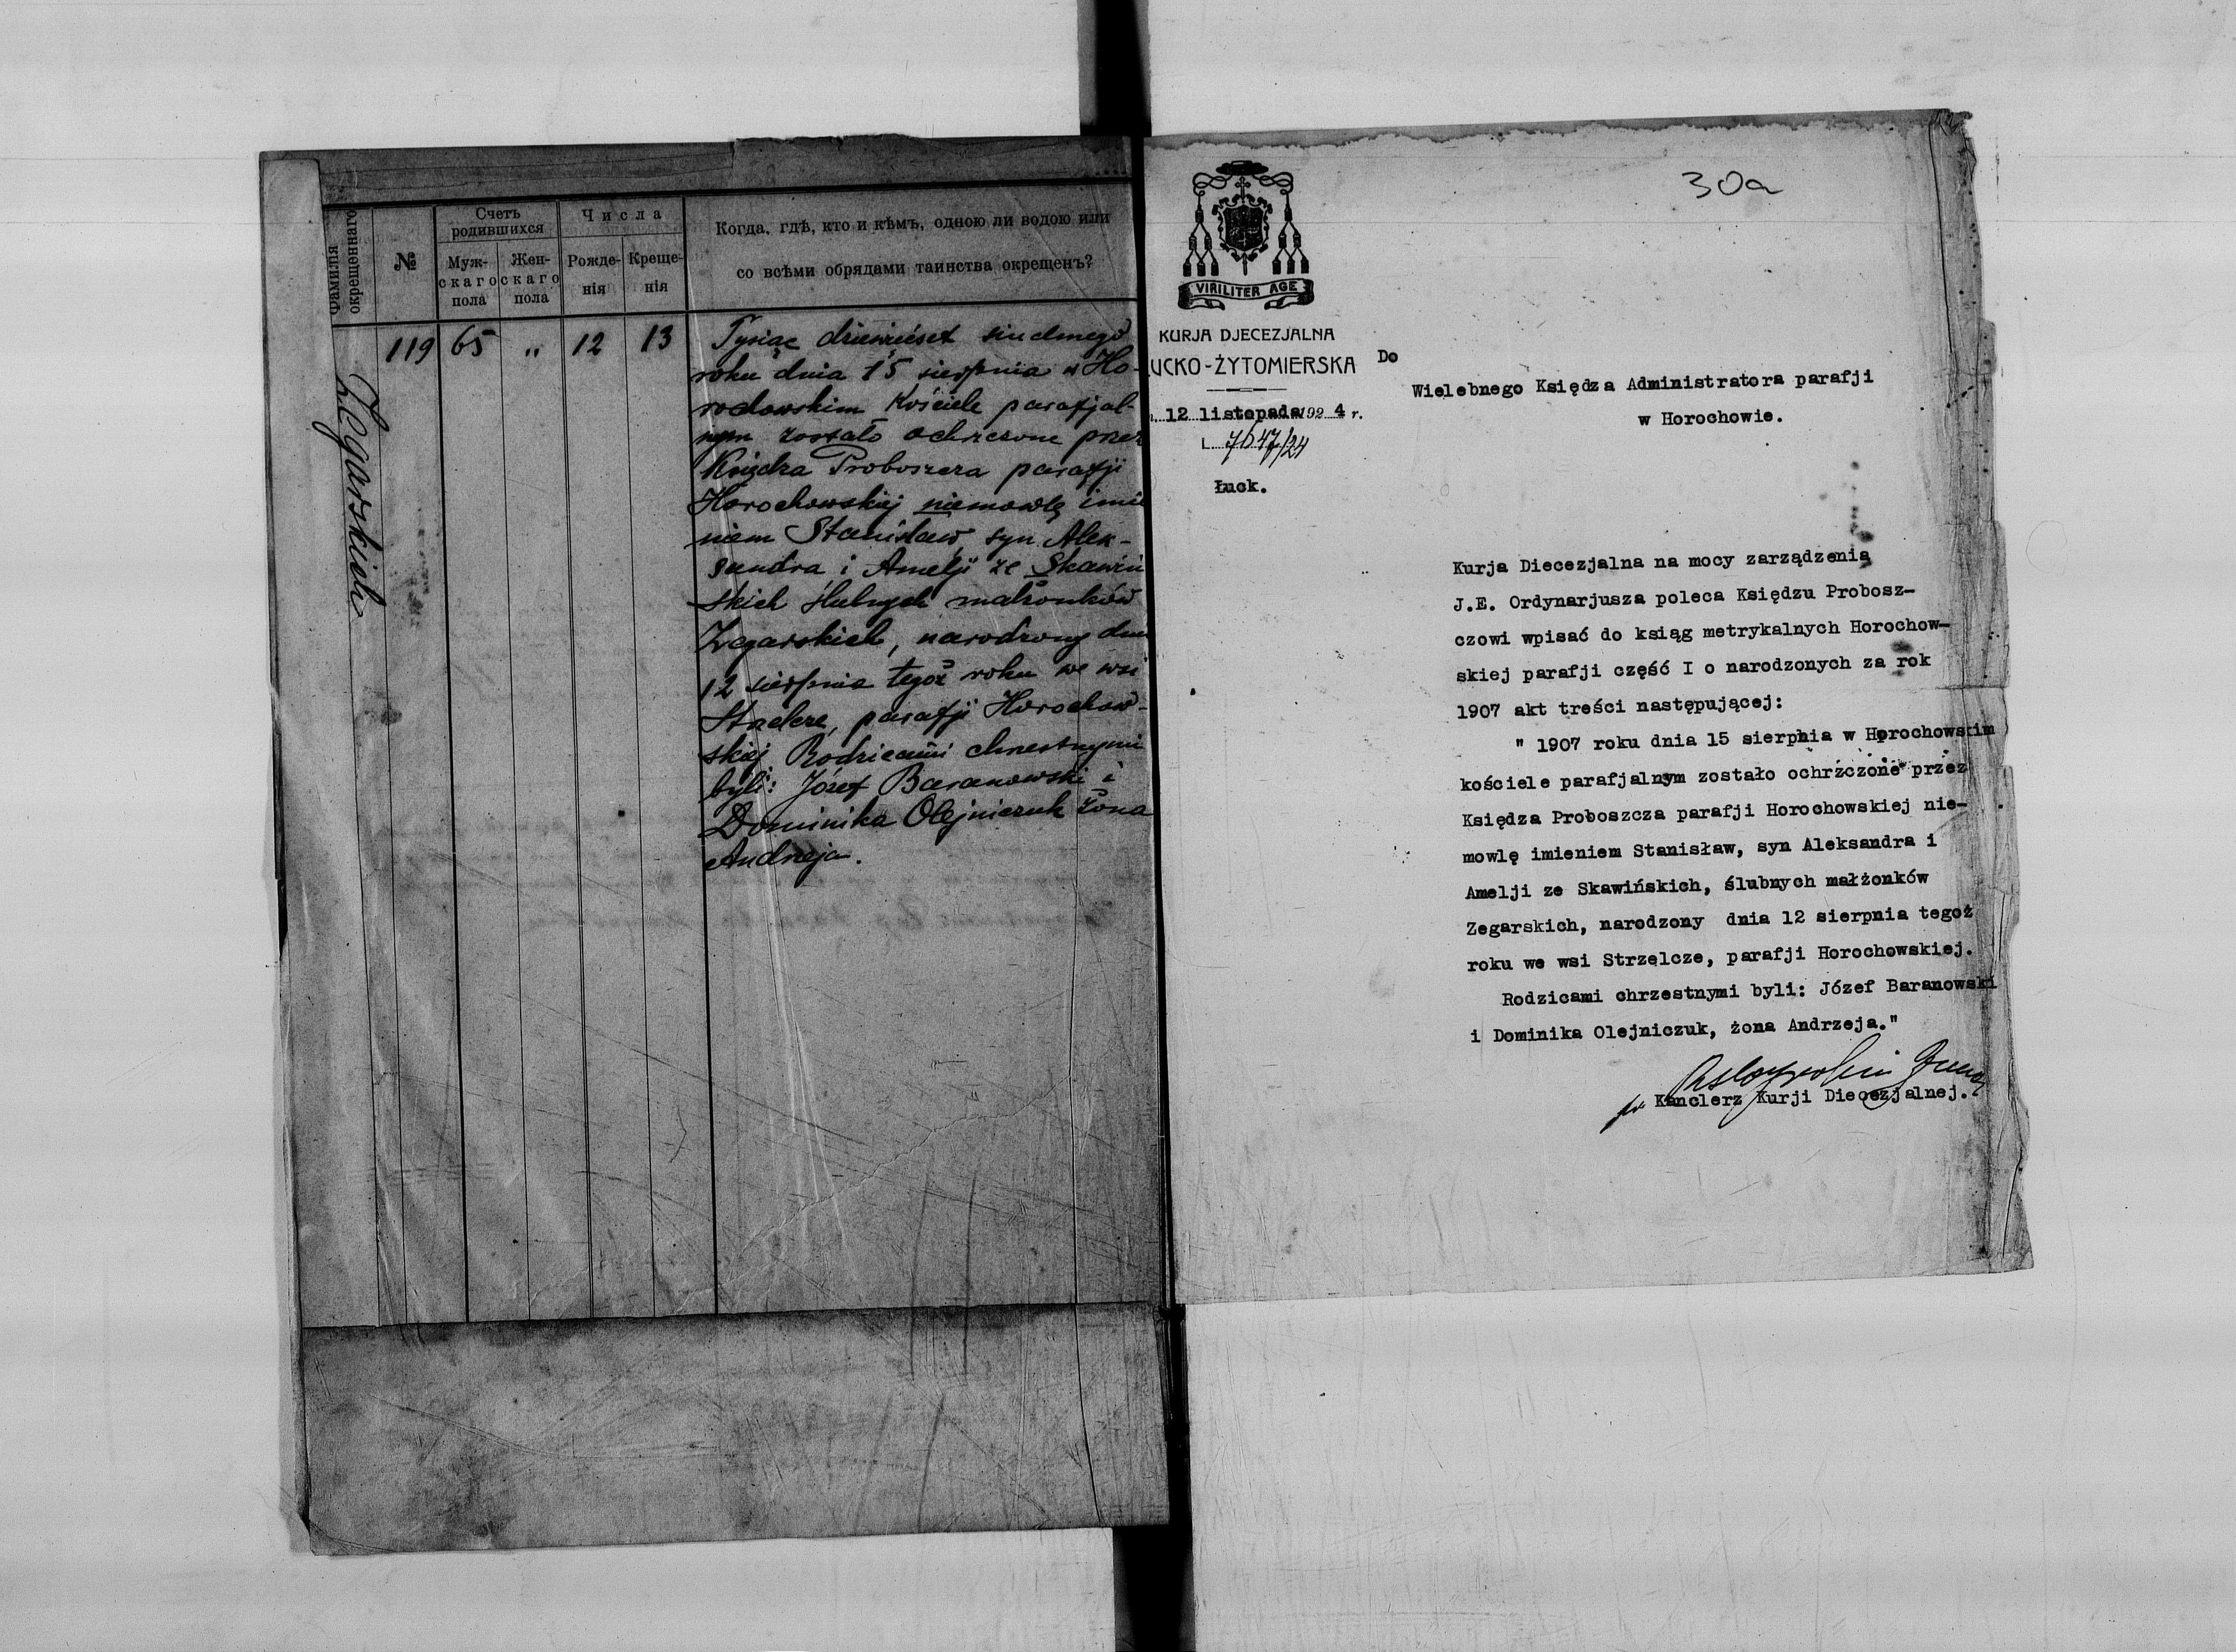 Фамилія
окрещеннаго
№
Счетъ
родившихся
Муж-
скаго
пола
Жен-
скаго
пола
Числа
Рожде-
нія
Креще-
нія
Когда, гдѣ, кто и кѣмъ, одною ли водою или
со всѣми обрядами таинства окрещенъ?
Zegarskich
119 65 " 12 13
Tysiąc dziewięćset siudmego
roku dnia 15 sierpnia w Ho-
rodowskim Kościele parafjal-
nym zostało ochrzczone przez
Księdza Proboszcza parafji
Horochowskiej niemowlę imie
niem Stanisław, syn Alek-
sandra i Amelji ze Skawiń
skich ślubnych małżonków
Zegarskich, narodzony dnia
12 sierpnia tegoż roku we wsi
parafji Horochow-
skiej. Rodzicami chrestnymi
byli: Józef Baranowski i
Dominika Olejniczuk żona
Andrzeja.
30a
VIRILITER AGE
KURJA DJECEZJALNA
UCKO-ŻYTOMIERSKA
12 listopada 192 4 r.
L. 7647/24
Łuck.
Do
Wielebnego Księdza Administratora parafji
w Horochowie.
Kurja Diecezjalna na mocy zarządzenia
J.E. Ordynarjusza poleca Księdzu Probosz-
czowi wpisać do ksiąg metrykalnych Horochow-
skiej parafji część I o narodzonych za rok
1907 akt treści następującej:
" 1907 roku dnia 15 sierpnia w Horochowskim
kościele parafjalnym zostało ochrzczone przez
Księdza Proboszcza parafji Horochowskiej nie-
mowlę imieniem Stanisław, syn Aleksandra i
Amelji ze Skawińskich, ślubnych małżonków
Zegarskich, narodzony dnia 12 sierpnia tegoż
roku we wsi Strzelcze, parafji Horochowskiej.
Rodzicami chrzestnymi byli: Józef Baranowski
i Dominika Olejniczuk, żona Andrzeja."
Kanclerz Kurji Diecezjalnej.